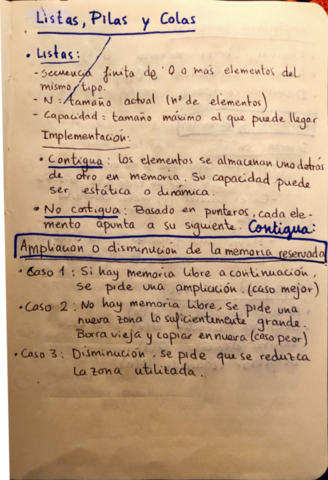 Listas, Pilas y Colas
• Listas:
- Secuencia finita de 0 o más elementos del
mismo tipo.
- N: tamaño actual (nº de elementos)
- Capacidad: tamaño máximo al que puede llegar
Implementación:
• Contigua: los elementos se almacenan uno detrás
de otro en memoria. Su capacidad puede
ser estática o dinámica.
• No contigua: Basado en punteros, cada ele-
mento apunta a su siguiente. Contigua:
Ampliación o disminución de la memoria reservada
• Caso 1: Si hay memoria libre a continuación,
se pide una ampliación. (caso mejor)
• Caso 2: No hay memoria libre. Se pide una
nueva zona lo suficientemente grande.
Borra vieja y copiar en nueva (caso peor)
• Caso 3: Disminución, se pide que se reduzca
la zona utilizada.